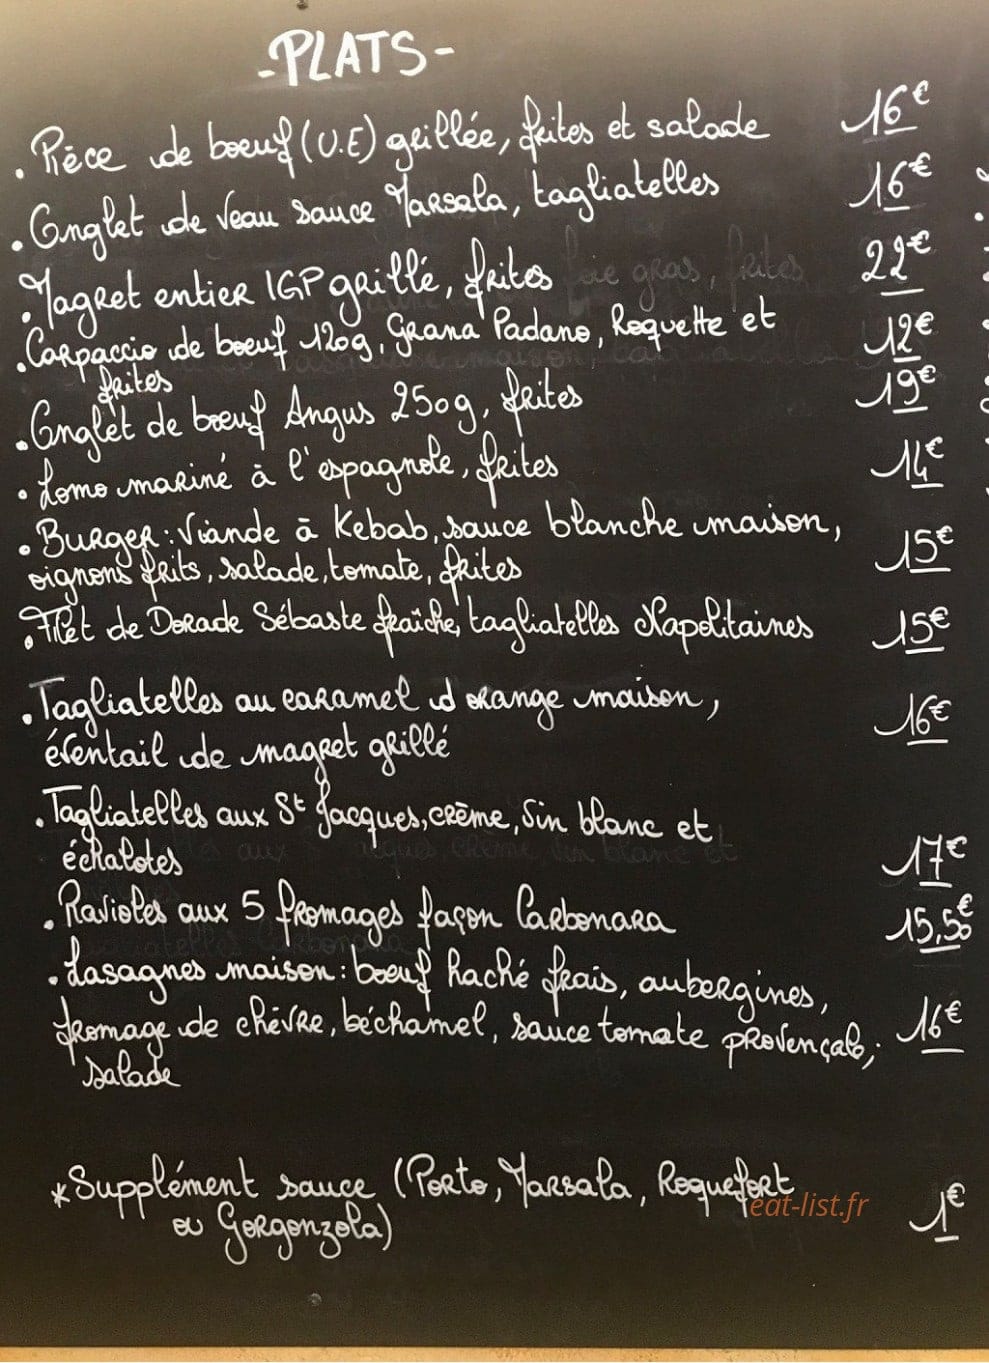 -PLATS-
. Pièce de boeuf (U.E) grillée, frites et salade 16€
. Onglet de Veau sauce Marsala, tagliatelles 16€
. Magret entier IGP grillé, frites 22€
. Carpaccio de boeuf 120g, Grana Padano, Roquette et 12€
frites
. Onglet de boeuf Angus 250g, frites 19€
. Lomo mariné à l'espagnole, frites 14€
. Burger : Viande à Kebab, sauce blanche maison, 15€
oignons frits, salade, tomate, frites
. Filet de Dorade Sébaste fraîche, tagliatelles Napolitaines 15€
. Tagliatelles au caramel d orange maison, 16€
éventail de magret grillé
. Tagliatelles aux St Jacques, crème, Vin blanc et
échalotes 17€
. Ravioles aux 5 fromages façon Carbonara 15,50€
. Lasagnes maison : boeuf haché frais, aubergines,
fromage de chèvre, béchamel, sauce tomate provençale, 16€
salade
* Supplément sauce (Porto, Marsala, Roquefort
ou Gorgonzola) 1€
eat-list.fr